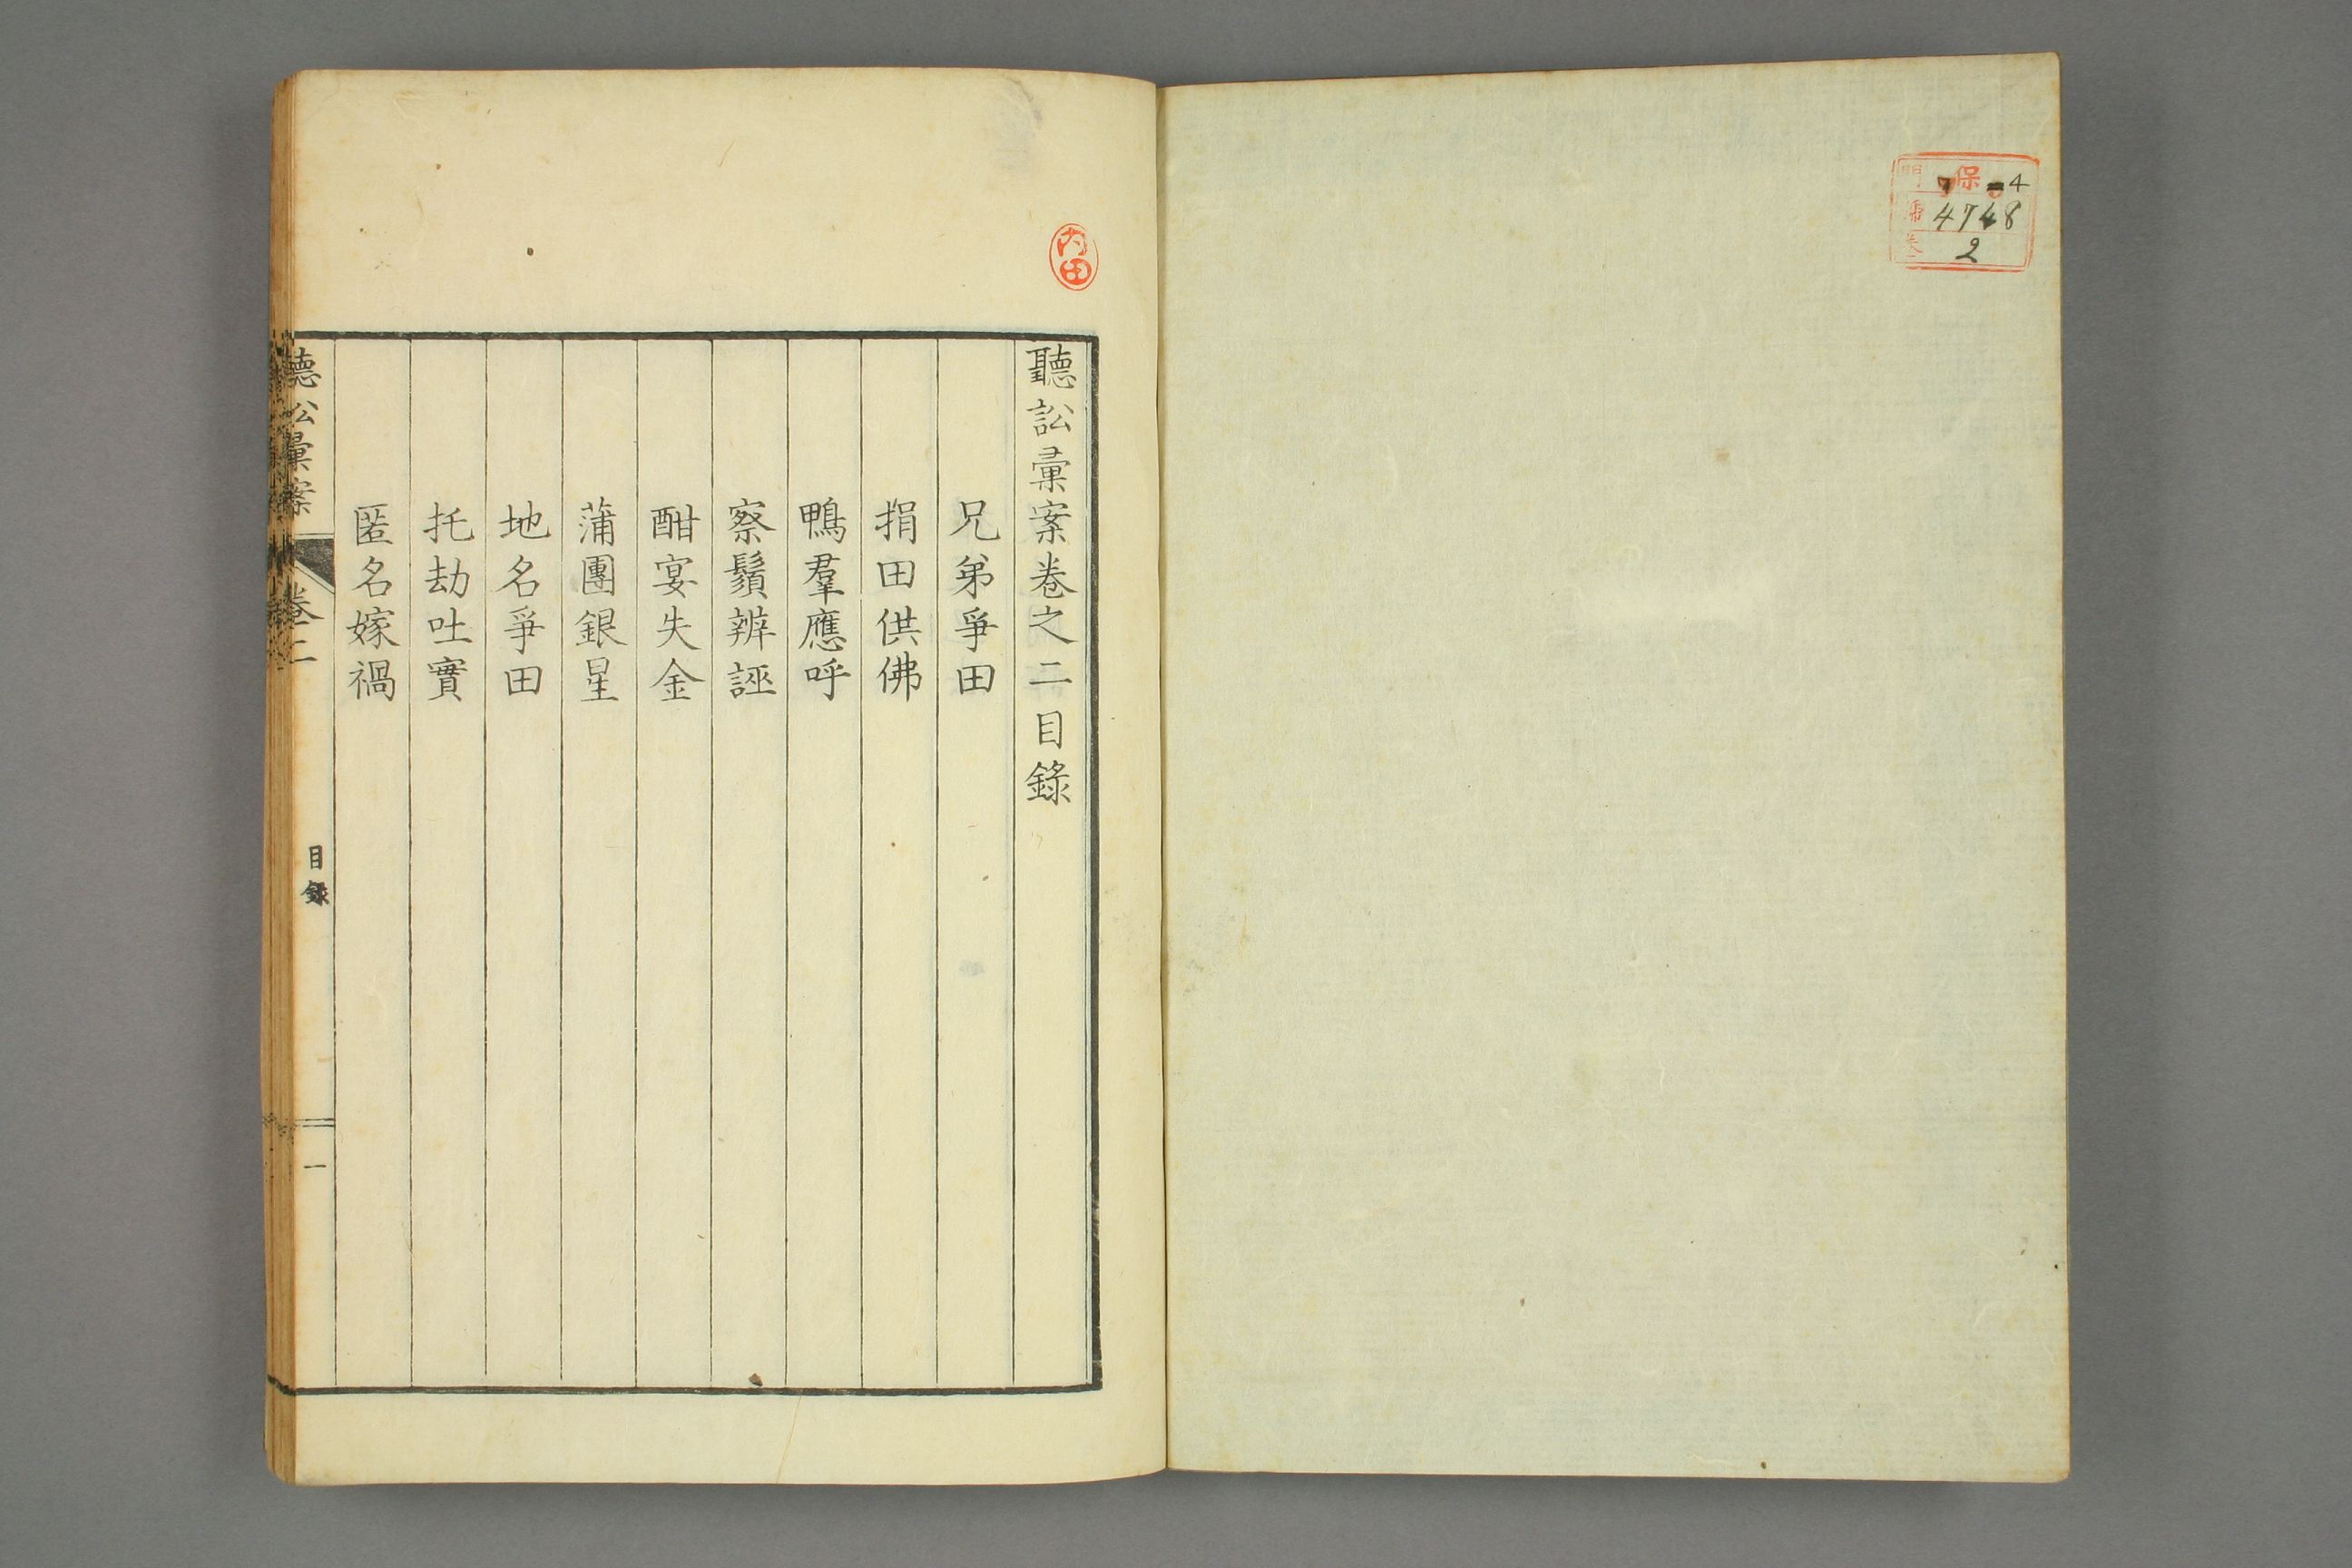 保
門 4
號 4748
2
內田
聽訟彙案卷之二目錄
兄弟爭田
捐田供佛
鴨羣應呼
察鬚辨誣
酣宴失金
蒲團銀星
地名爭田
托劫吐實
匿名嫁禍
聽訟彙案 卷二 目錄 一